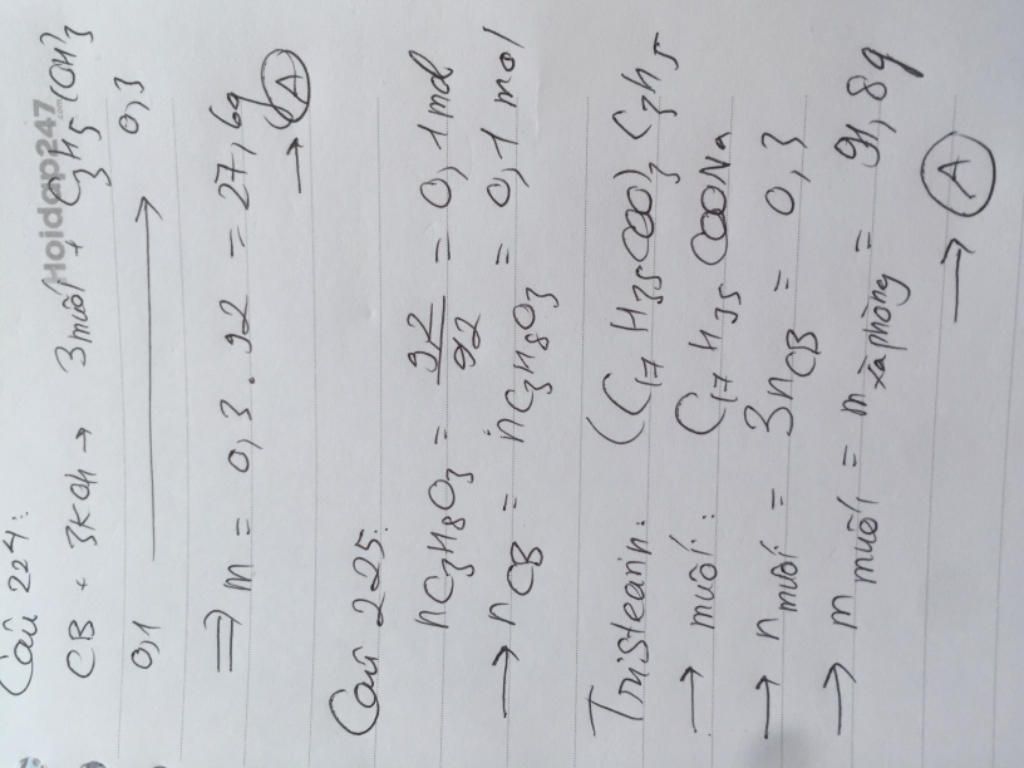 Hoidap247.com
Câu 224:
CB + 3KOH → 3 muối + C3H5(OH)3
0,1 → 0,3
⇒ m = 0,3 . 92 = 27,6g
→ A
Câu 225:
nC3H8O3 = 9,2/92 = 0,1 mol
→ nCB = nC3H8O3 = 0,1 mol
Tristearin: (C17H35COO)3C3H5
→ muối: C17H35COONa
→ n muối = 3nCB = 0,3
→ m muối = m xà phòng = 91,8g
→ A